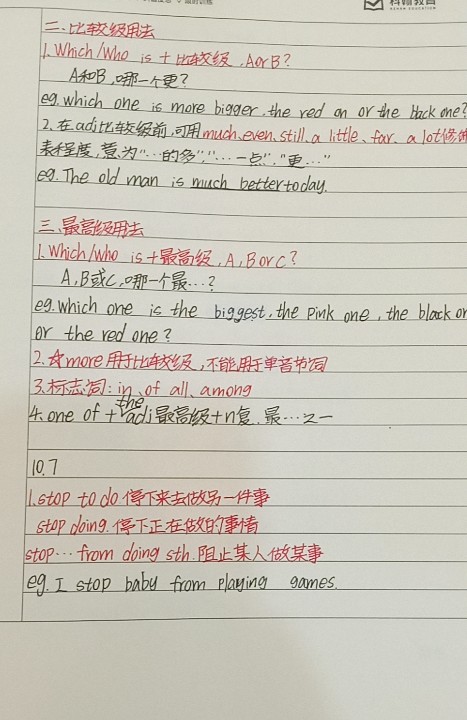 科翰教育
二、比较级用法
1.Which/Who is + 比较级 ,A or B?
A和B,哪一个更?
eg. which one is more bigger, the red on or the back one?
2.在adj比较级前,可用much、even、still、a little、far、a lot修饰
表程度,意为“…的多”,“…一点”,“更…”
eg. The old man is much better today.
三、最高级用法
1.Which/who is +最高级 ,A,B or C?
A,B或C,哪一个最…?
eg. which one is the biggest, the pink one, the black or
or the red one?
2.☆more用于比较级,不能用于单音节词
3.标志词: in、of all、among
4. one of + the adj最高级+n复.最…之一
10.7
1.stop to do 停下来去做另一件事
stop doing. 停下正在做的事情
stop… from doing sth.阻止某人做某事
eg. I stop baby from playing games.